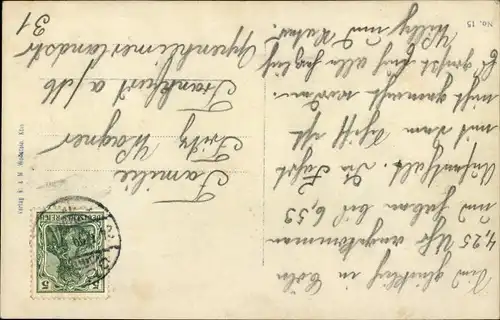 Sind glücklich in Cöln
4,25 Uhr angekommen
und haben bis 6,53
Aufenthalt. Die Fahrt
mit dem Schiff ist
nicht gemacht worden.
Es grüßt Euch alle herzlich
Willy und
Familie
Fritz Wagner
Frankfurt a/M
Oppenheimerlandstr
31
No. 15
Verlag v.
DEUTSCHES REICH
5 5